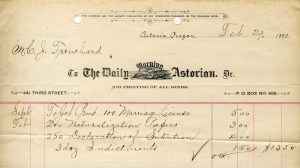 Astoria, Oregon, Feb 29, 1892
M C. J. Trenchard
To The Daily Morning Astorian, Dr.
JOB PRINTING OF ALL KINDS.
441 THIRD STREET. P. O. BOX 405
Sept To Job Print 100 Marriage License 5 00
Feb 200 Naturalization Papers 3 00
250 Declaration of Intention 4 00
3 doz Indictments 1 50 $13.50